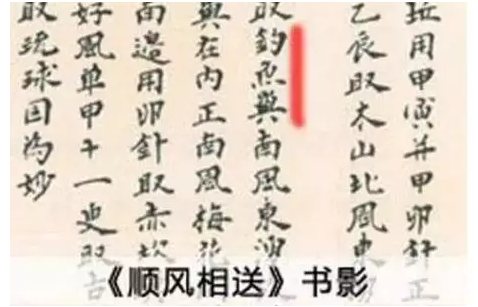 玹用甲寅并甲卯針正
乙辰取木山北風東
取釣魚嶼南風東湧
嶼在內正南風梅花
面邊用卯針取赤坎
好風單甲十一更取古
取琉球囯為妙
《顺风相送》书影